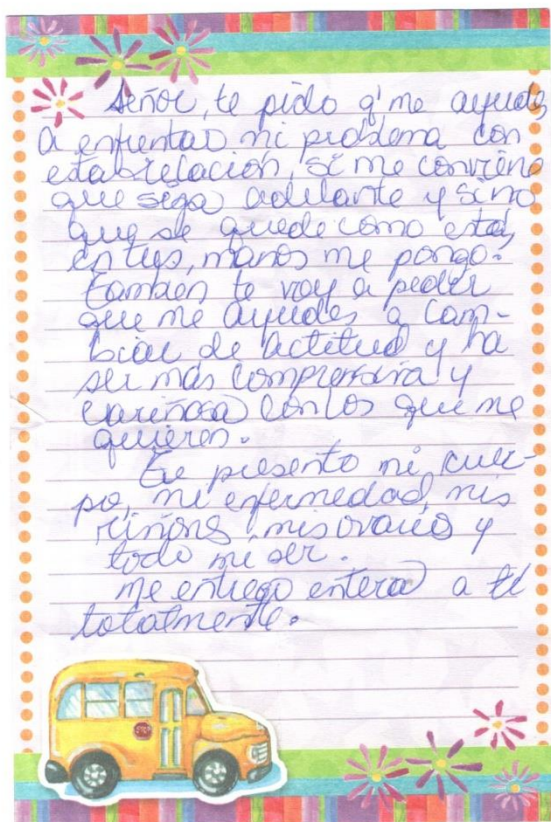 Señor, te pido q' me ayudes
a enfrentar mi problema con
esta relación, si me conviene
que siga adelante y si no
que se quede como está,
en tus manos me pongo.
También te voy a pedir
que me ayudes a cam-
biar de actitud y ha
ser más comprensiva y
cariñosa con los que me
quieren.
Te presento mi cuer-
po, mi enfermedad, mis
riñones, mis ovarios y
todo mi ser.
me entrego entera a ti
totalmente.
STOP